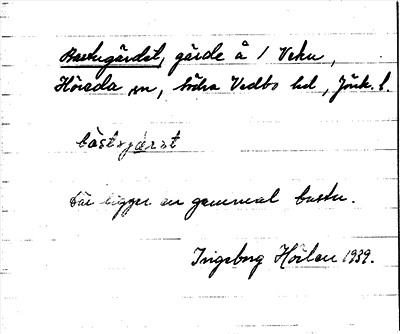 Bastugärdet, gärde å 1 Veku,
Hörøda sn, Södra Vedbo hd, Jönk. l.
Där ligger en gammal bastu.
Ingeborg Hörlau 1939.